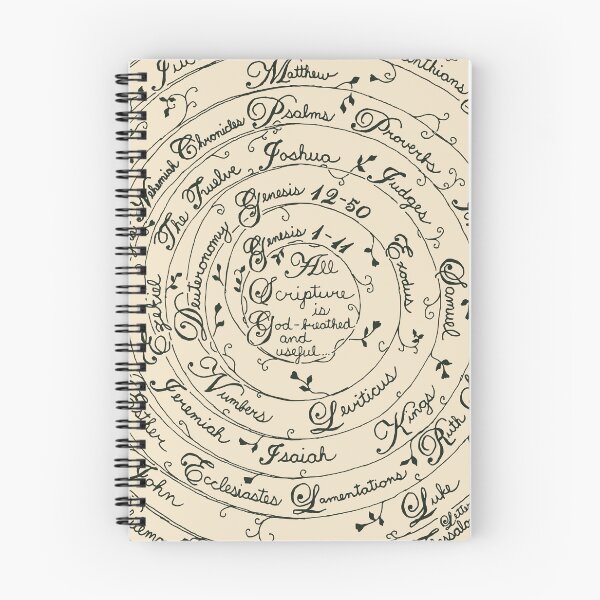 All
Scripture
is
God-breathed
and
useful...
Genesis 1-11
Genesis 12-50
Exodus
Leviticus
Numbers
Deuteronomy
Joshua
Judges
Samuel
Kings
Isaiah
Jeremiah
Ezekiel
The Twelve
Psalms
Proverbs
Ruth
Lamentations
Ecclesiastes
Nehemiah
Chronicles
Matthew
Luke
John